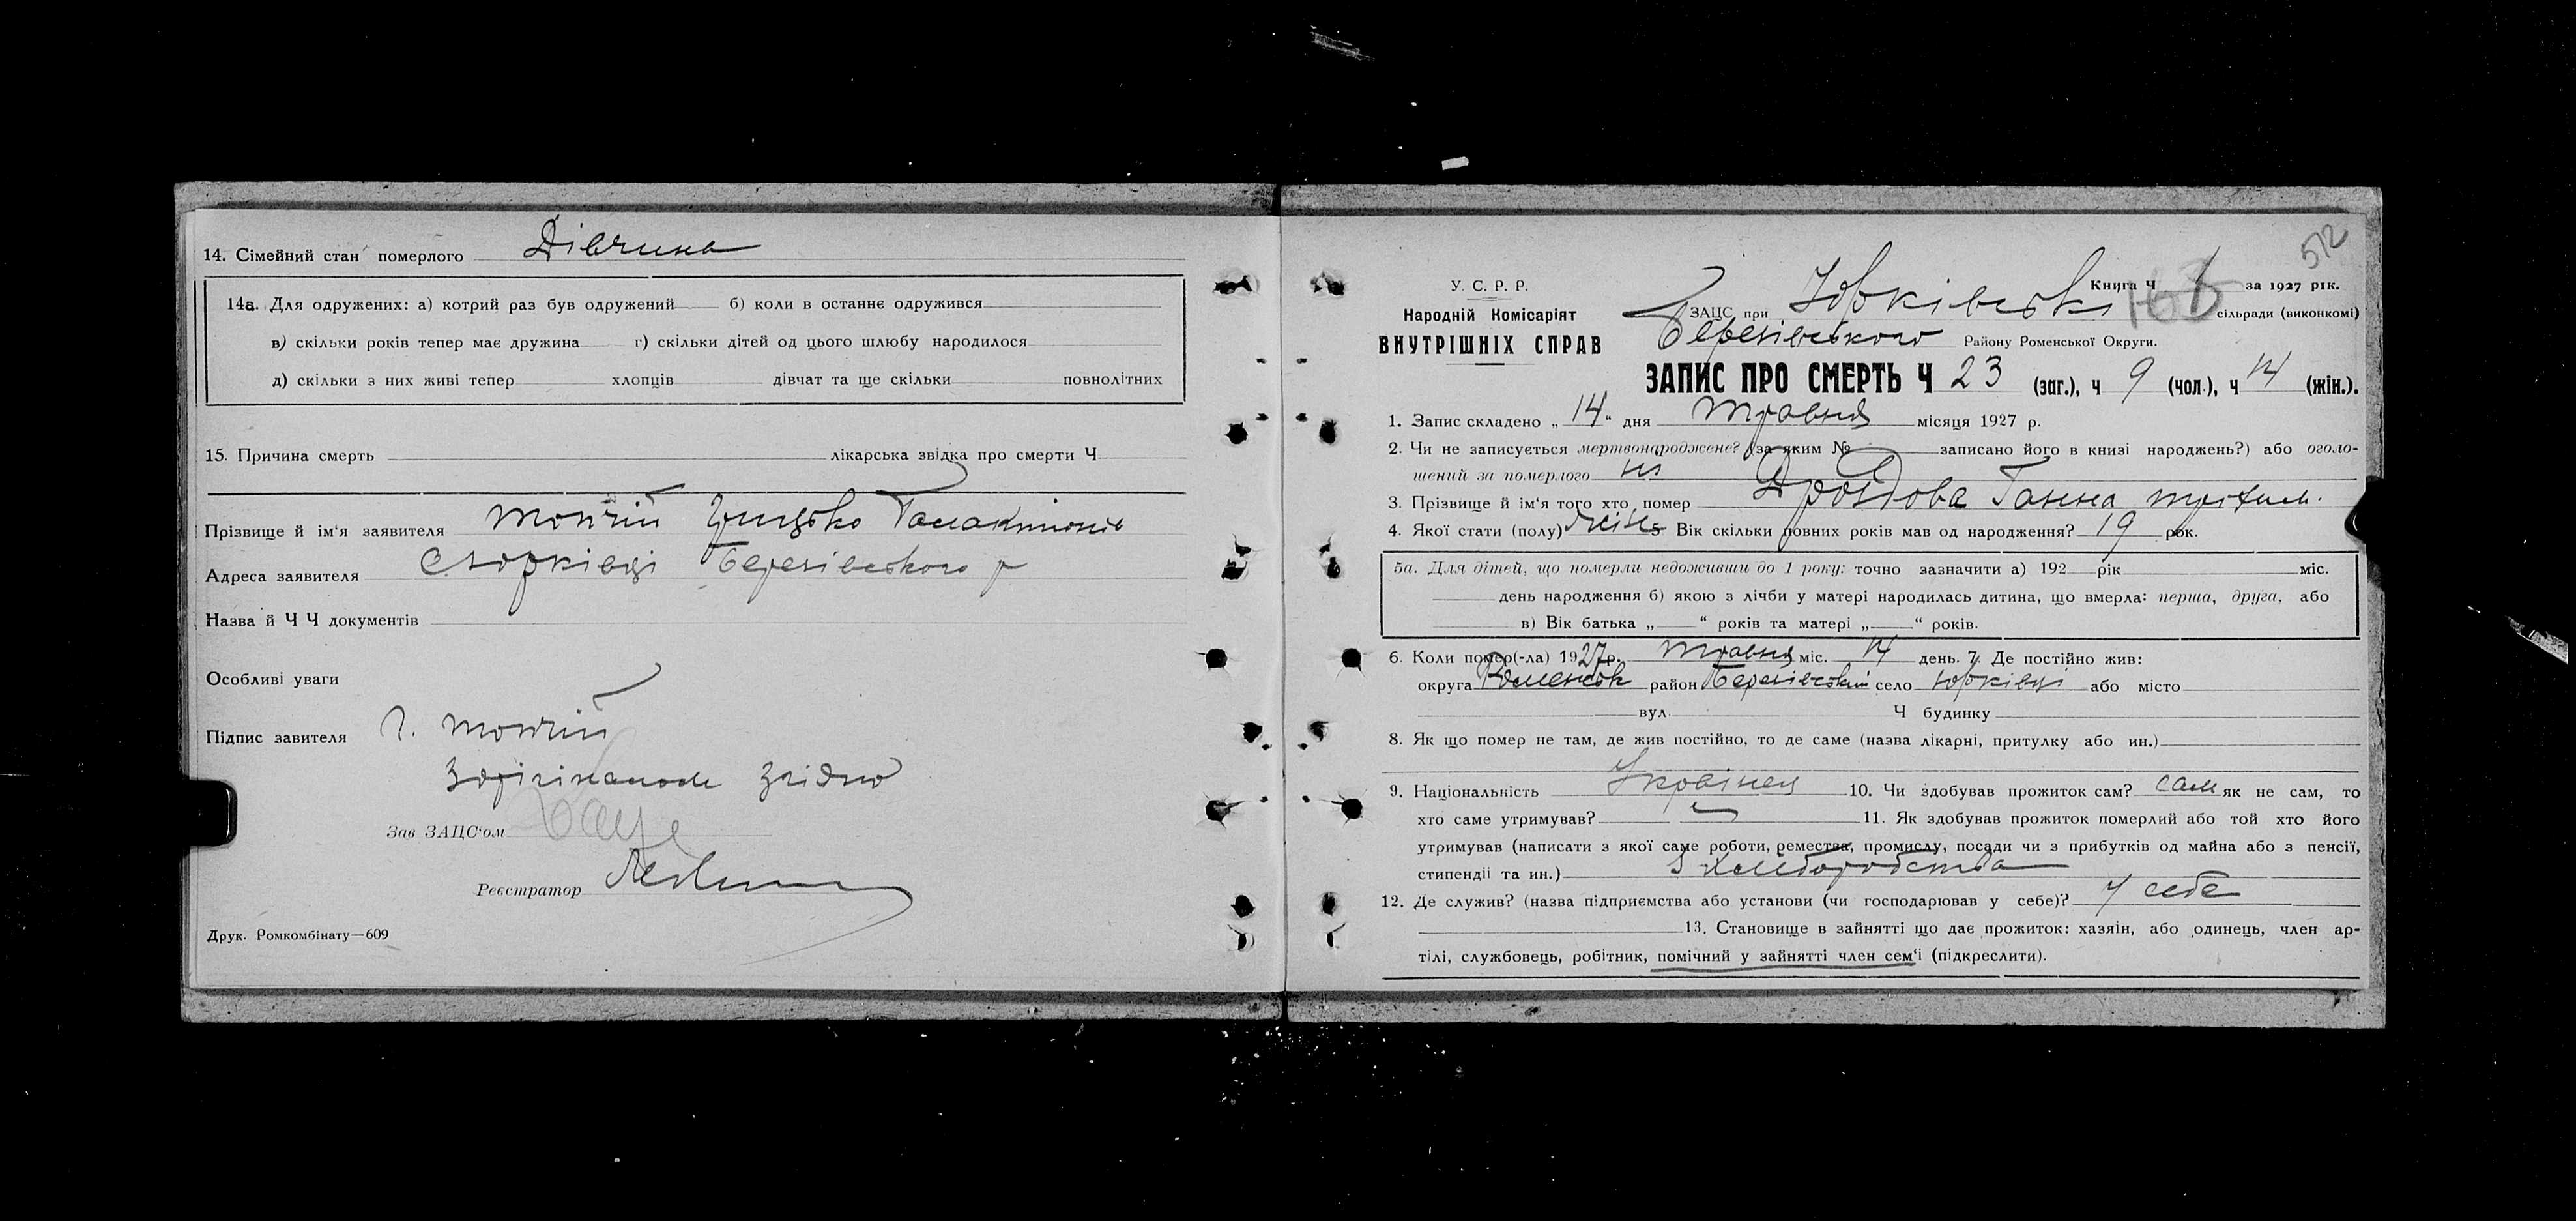 14. Сімейний стан померлого Дівчина
14а. Для одружених: а) котрий раз був одружений б) коли в останнє одружився
в) скільки років тепер має дружина г) скільки дітей од цього шлюбу народилося
д) скільки з них живі тепер хлопців дівчат та ще скільки повнолітних
15. Причина смерть лікарська звідка про смерти Ч
Прізвище й ім'я заявителя Мончій Грицько
Адреса заявителя с Юрківці Березівського р
Назва й Ч Ч документів
Особливі уваги
Підпис завителя Г. Мончій
З орігіналом згідно
Зав ЗАЦС'ом
Реєстратор
Друк. Ромкомбінату—609
512
У. С. Р. Р.
Народній Комісаріят
ВНУТРІШНІХ СПРАВ
Книга Ч за 1927 рік.
ЗАЦС при Юрківській сільради (виконкомі)
Березівського Району Роменської Округи.
ЗАПИС ПРО СМЕРТЬ Ч 23 (заг.), ч 9 (чол.), ч 14 (жін.).
1. Запис складено „ 14 " дня травня місяця 1927 р.
2. Чи не записується мертвонароджене? (за яким № записано його в книзі народжень?) або оголо-
шений за померлого ні
3. Прізвище й ім'я того хто помер Дроздова Ганна
4. Якої стати (полу) жін. 5 Вік скільки повних років мав од народження? 19 рок.
5а. Для дітей, що померли недоживши до 1 року: точно зазначити а) 192 рік міс.
день народження б) якою з лічби у матері народилась дитина, що вмерла: перша, друга, або
в) Вік батька „ " років та матері „ " років.
6. Коли помер(-ла) 1927р. травня міс. 14 день. 7. Де постійно жив:
округа Роменськ район Березівський село Юрківці або місто
вул. Ч будинку
8. Як що помер не там, де жив постійно, то де саме (назва лікарні, притулку або ин.)
9. Національність Українец 10. Чи здобував прожиток сам? сам як не сам, то
хто саме утримував? 11. Як здобував прожиток померлий або той хто його
утримував (написати з якої саме роботи, ремества, промислу, посади чи з прибутків од майна або з пенсії,
стипендії та ин.) З хліборобства
12. Де служив? (назва підприємства або установи (чи господарював у себе)? у себе
13. Становище в зайнятті що дає прожиток: хазяін, або одинець, член ар-
тілі, службовець, робітник, помічний у зайнятті член сем'і (підкреслити).